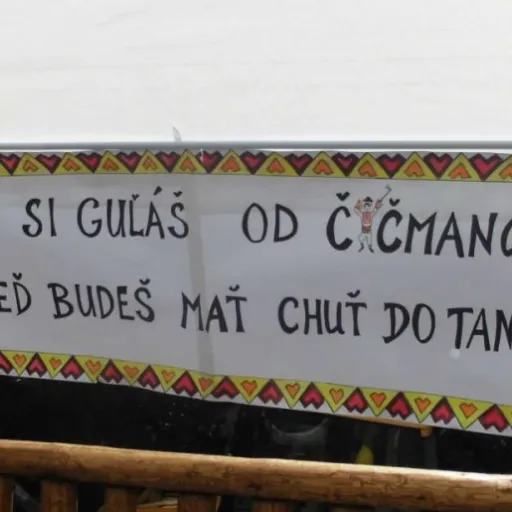 SI GUĽÁŠ OD ČIČMANC
EĎ BUDEŠ MAŤ CHUŤ DO TAN